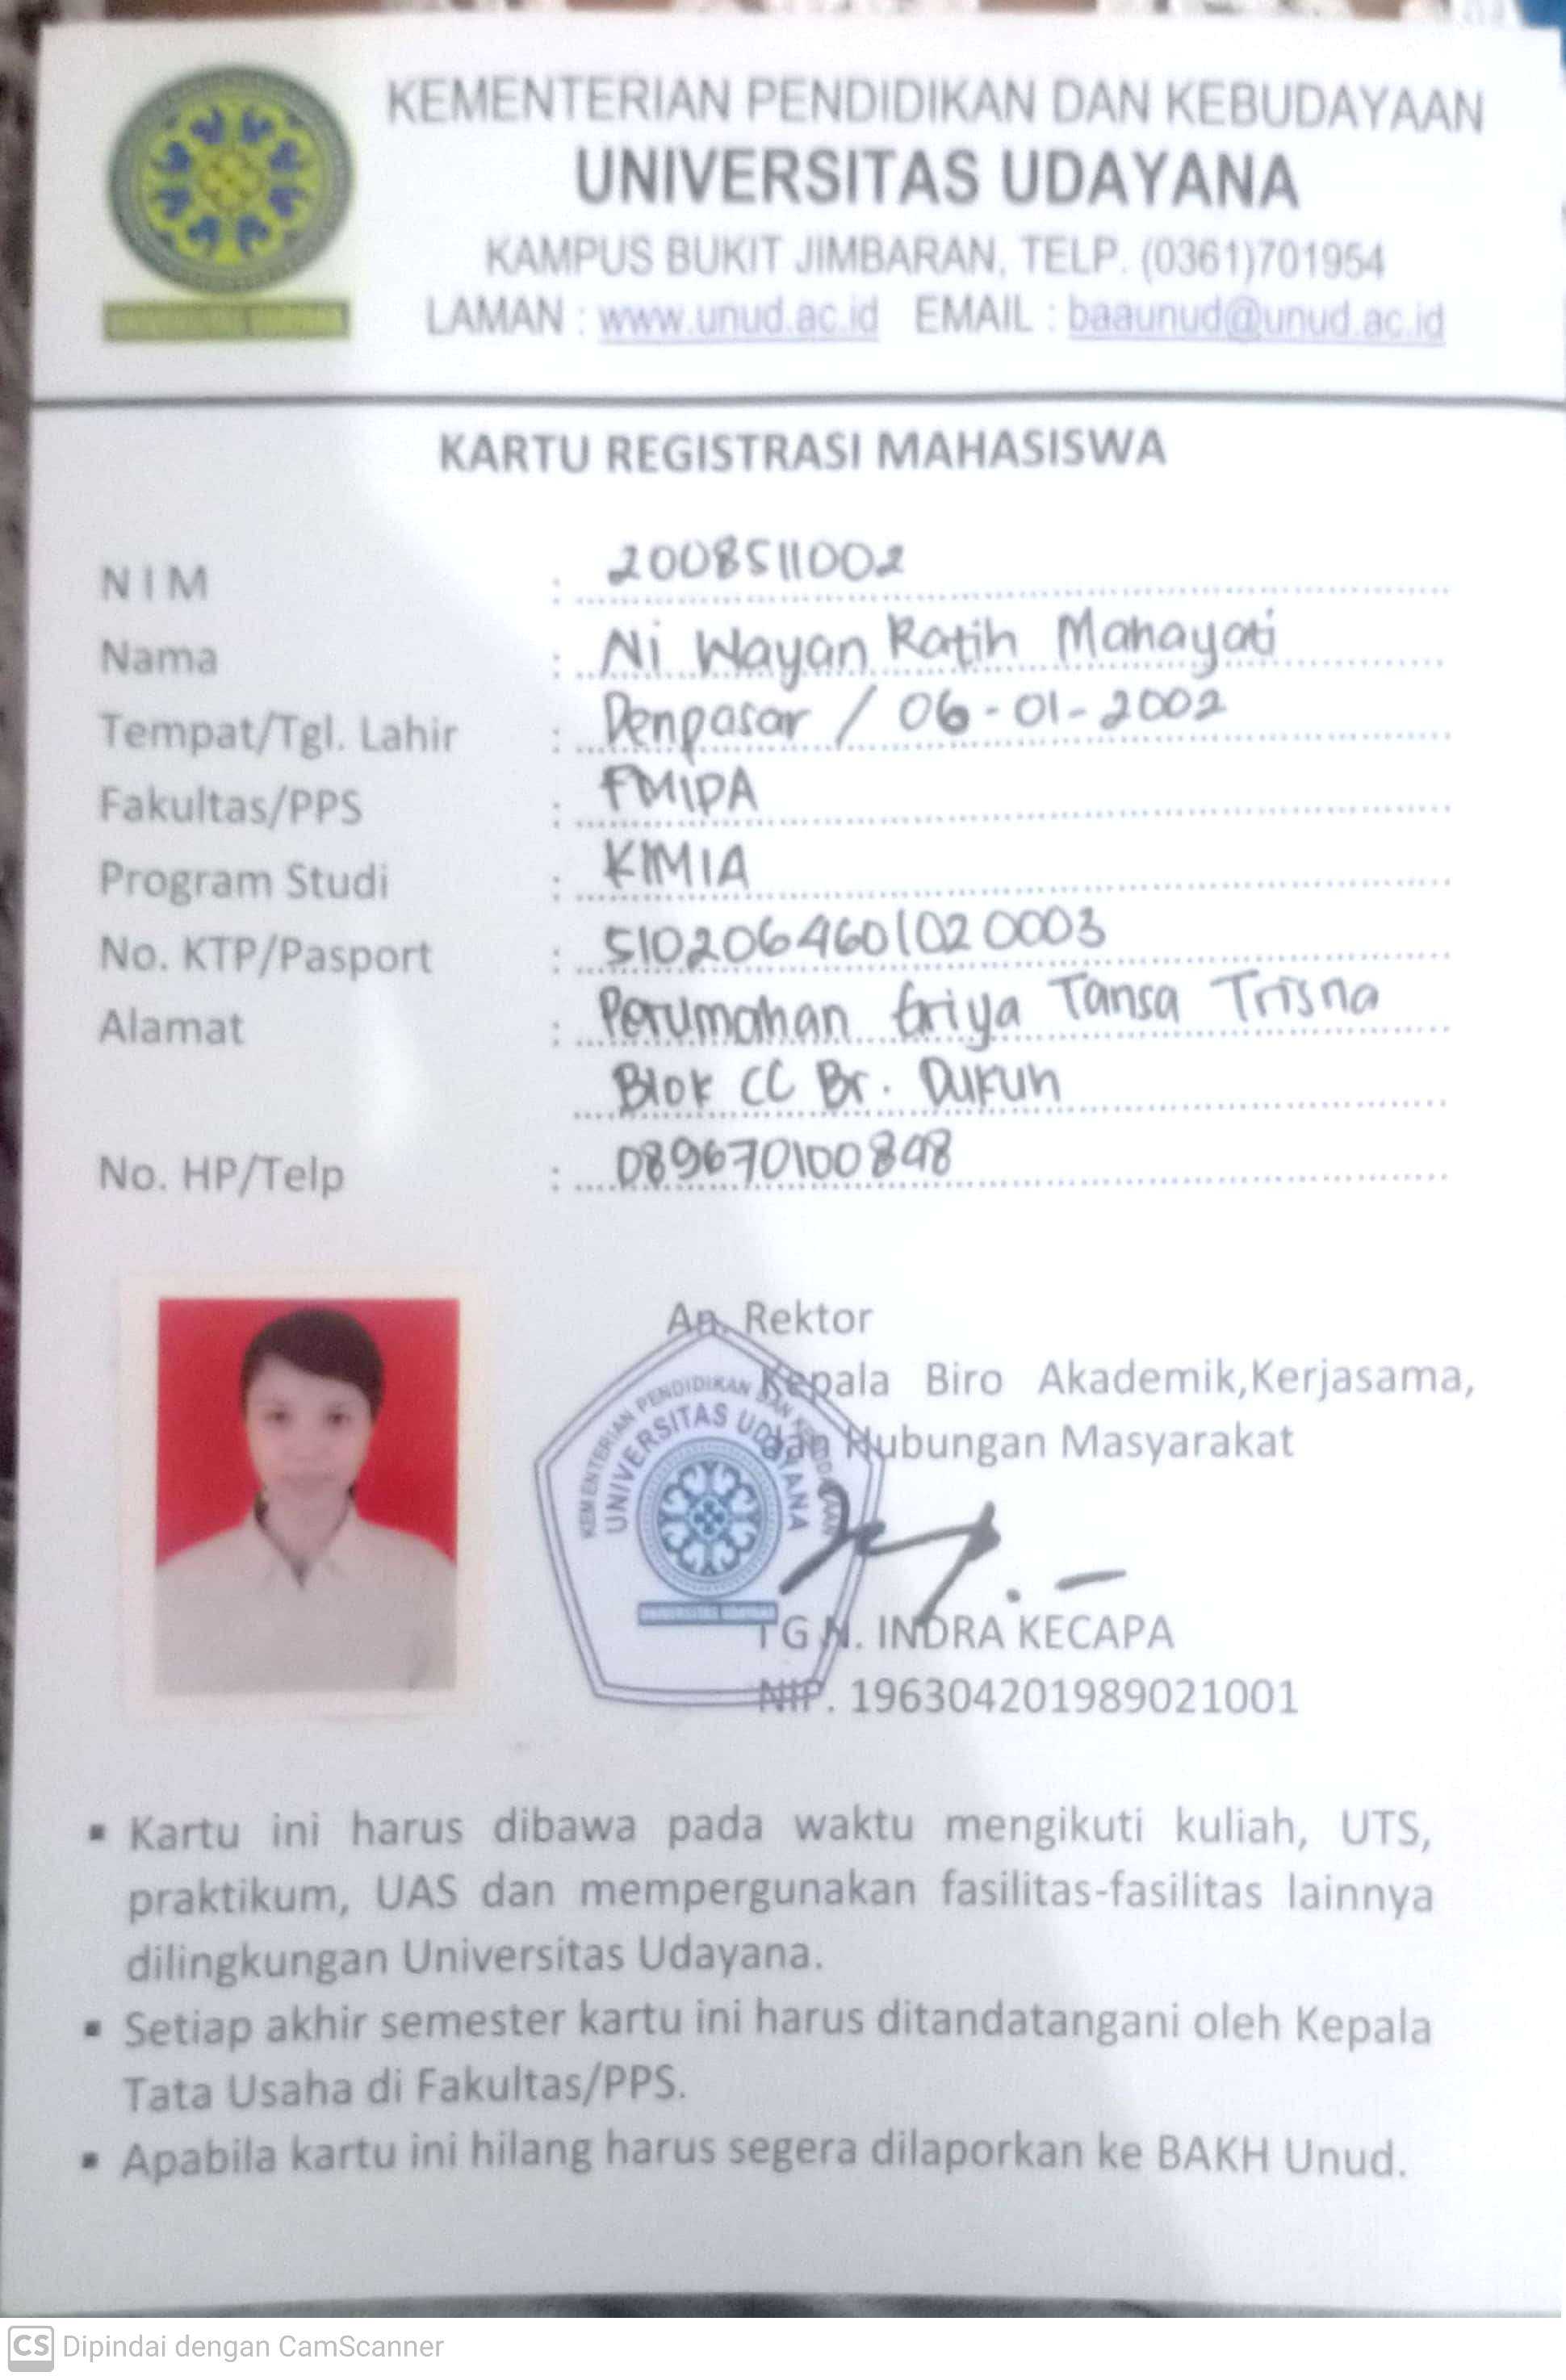 KEMENTERIAN PENDIDIKAN DAN KEBUDAYAAN
UNIVERSITAS UDAYANA
KAMPUS BUKIT JIMBARAN, TELP. (0361)701954
LAMAN : www.unud.ac.id EMAIL : baaunud@unud.ac.id
KARTU REGISTRASI MAHASISWA
NIM : 2008511002
Nama : Ni Wayan Ratih Mahayati
Tempat/Tgl. Lahir : Denpasar / 06-01-2002
Fakultas/PPS : FMIPA
Program Studi : KIMIA
No. KTP/Pasport : 5102064601020003
Alamat : Perumahan Griya Tansa Trisna
Blok CC Br. Dukuh
No. HP/Telp : 089670100898
An. Rektor
Kepala Biro Akademik,Kerjasama,
dan Hubungan Masyarakat
KEMENTERIAN PENDIDIKAN DAN KEBUDAYAAN
UNIVERSITAS UDAYANA
I G N. INDRA KECAPA
NIP. 196304201989021001
▪ Kartu ini harus dibawa pada waktu mengikuti kuliah, UTS,
praktikum, UAS dan mempergunakan fasilitas-fasilitas lainnya
dilingkungan Universitas Udayana.
▪ Setiap akhir semester kartu ini harus ditandatangani oleh Kepala
Tata Usaha di Fakultas/PPS.
▪ Apabila kartu ini hilang harus segera dilaporkan ke BAKH Unud.
CS Dipindai dengan CamScanner